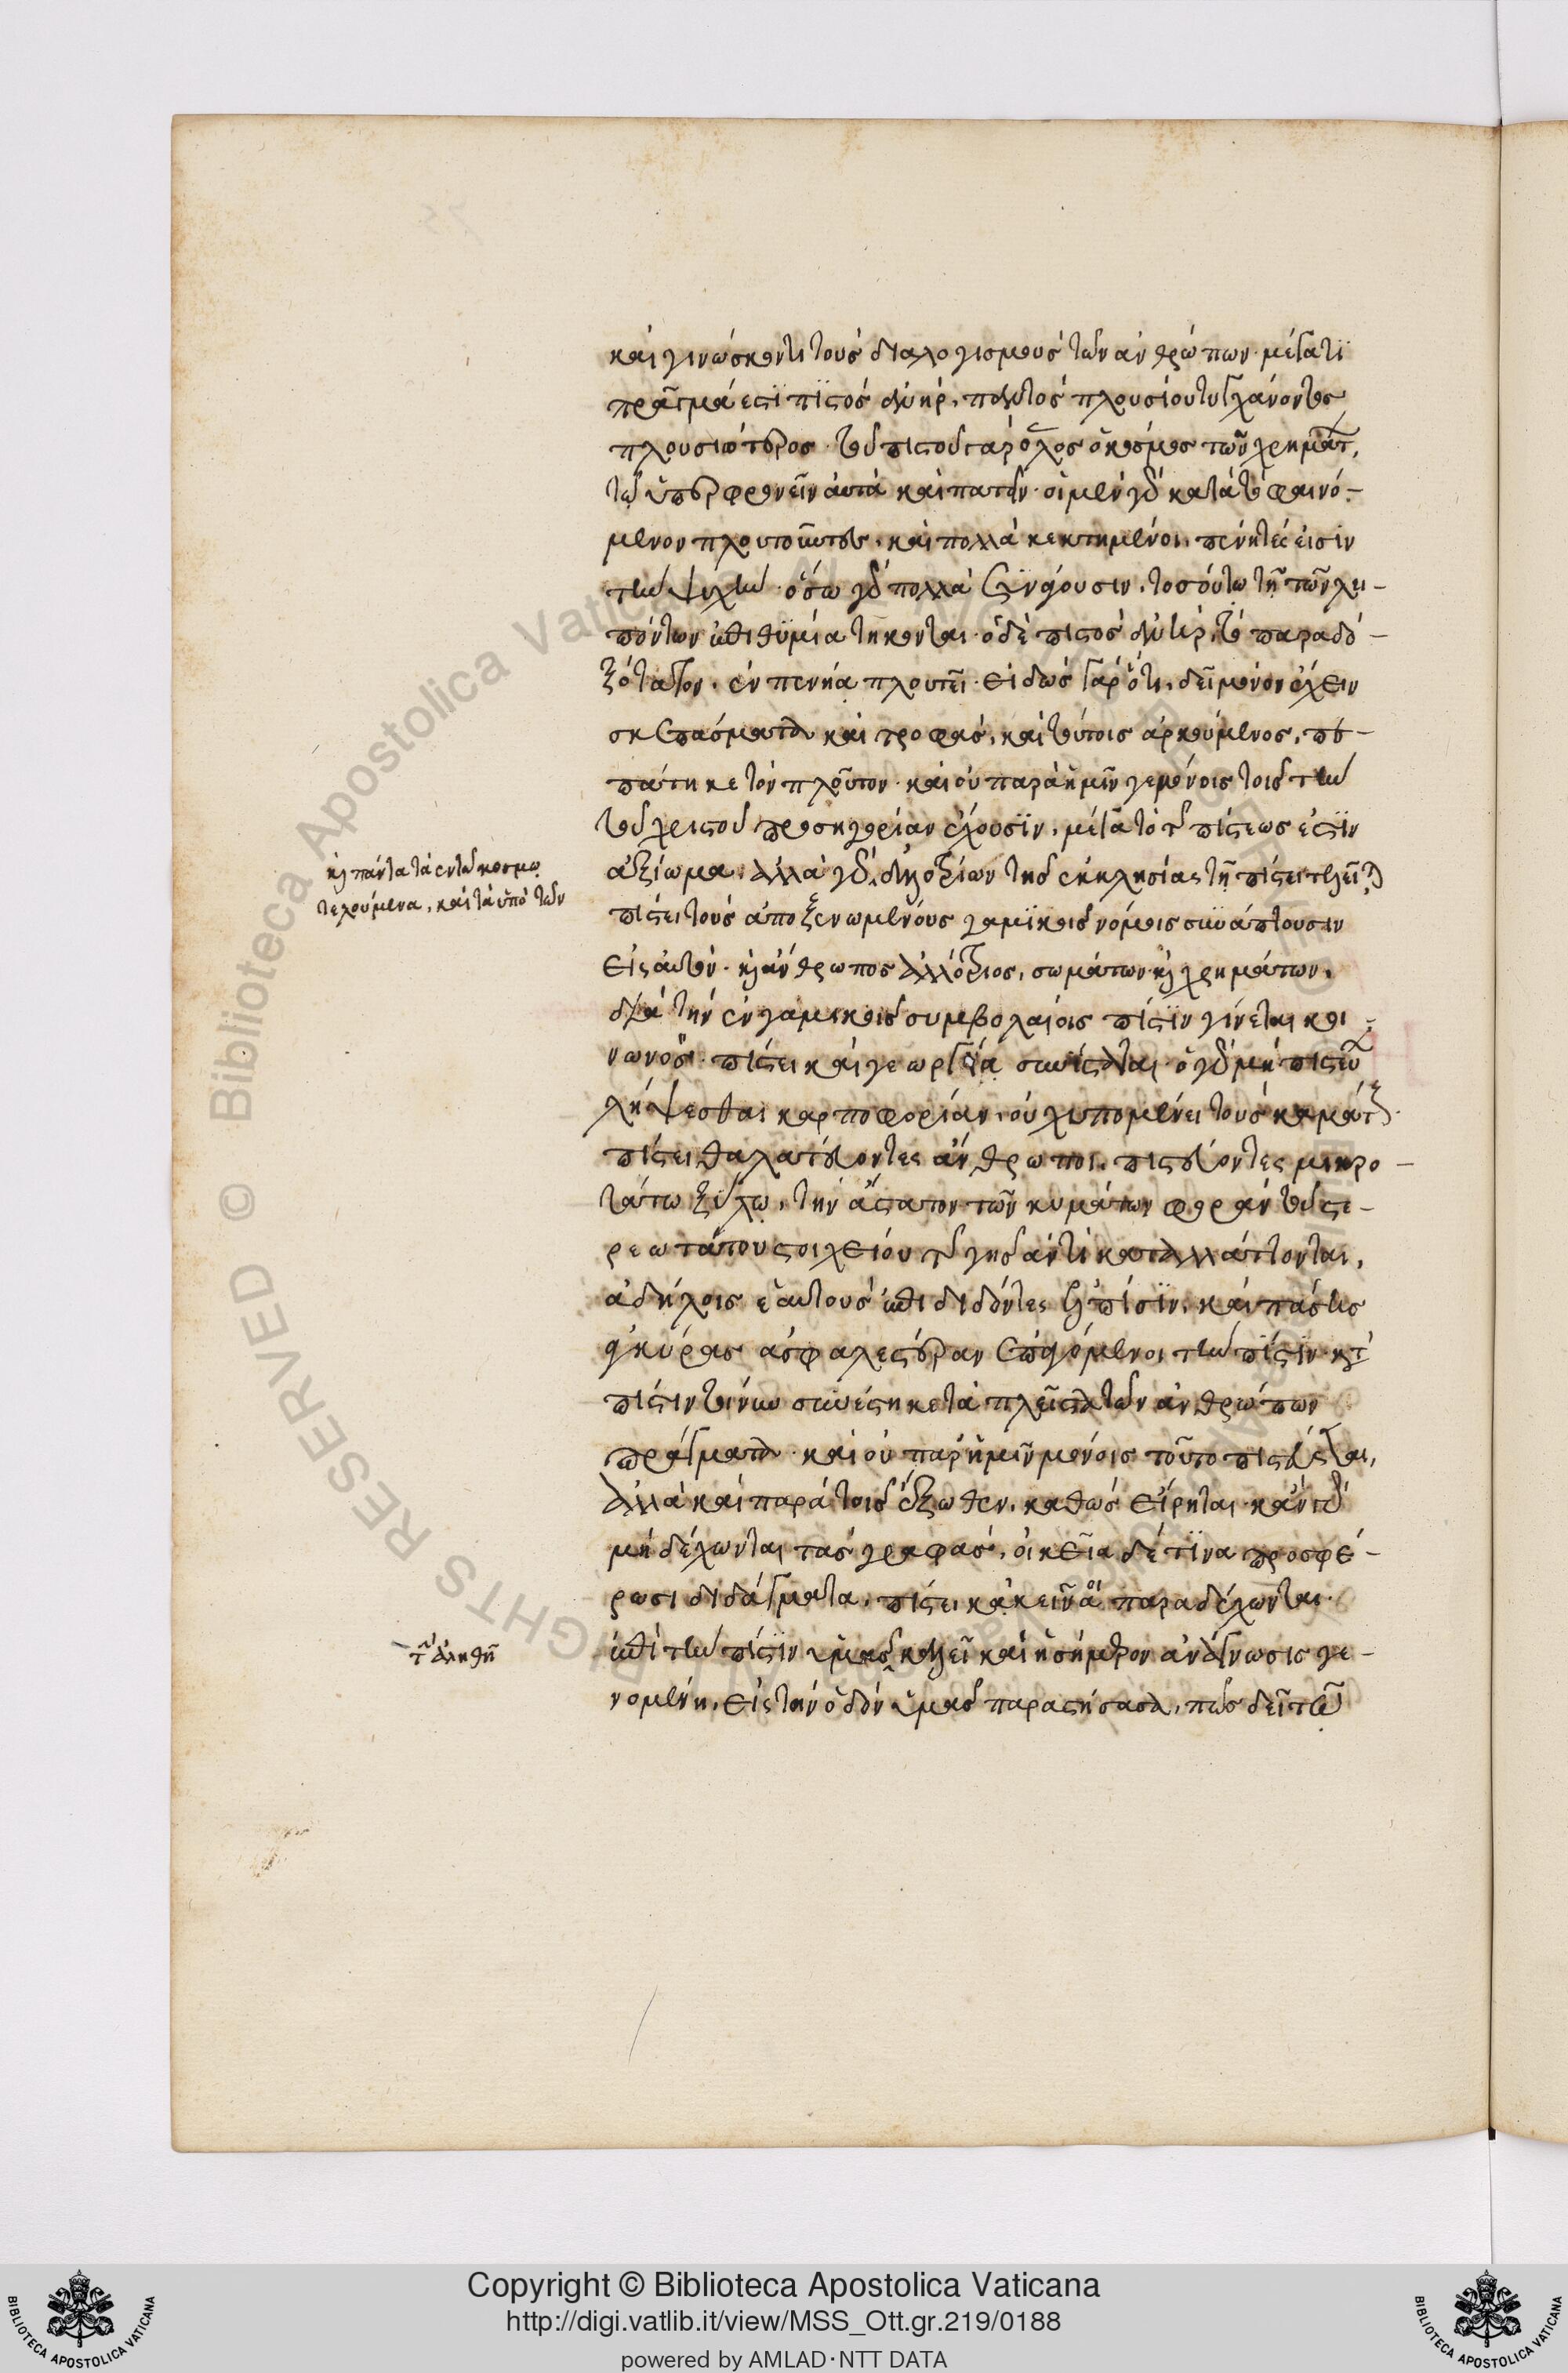 καὶ γινώσκοντι τοὺς διαλογισμοὺς τῶν ἀνθρώπων· μέγα τι
πρᾶγμά ἐστι πιστὸς ἀνὴρ, παντὸς πλουσίου τυγχάνοντος
πλουσιώτερος· τοῦ πιστοῦ γὰρ ὅλος ὁ κόσμος τῶν χρημάτ,
τῷ ὑπερφρονεῖν αὐτὰ καὶ πατεῖν· οἱ μὲν γὰρ κατὰ τὸ φαινό-
μενον πλουτοῦντες, καὶ πολλὰ κεκτημένοι, πένητές εἰσιν
τὴν ψυχήν· ὅσω γὰρ πολλὰ συνάγουσιν, τοσούτω τῆ τῶν λει-
πόντων ἐπιθυμία τήκονται· ὁ δὲ πιστὸς ἀνὴρ, τὸ παραδο-
ξότατον, ἐν πενία πλουτεῖ· εἰδὼς γὰρ ὅτι, δεῖ μόνον ἔχειν
σκεπάσματα καὶ τροφὰς, καὶ τούτοις ἀρκούμενος, πε-
πάτηκε τὸν πλοῦτον· καὶ οὐ παρὰ ἡμῖν γε μόνοις τοῖς τὴν
τοῦ χριστοῦ προσηγορίαν ἔχουσιν, μέγα τὸ τῆς πίστεως ἐστὶν
ἀξίωμα, ἀλλὰ γὰρ, ἀλλοτρίων τῆς ἐκκλησίας τῆ πίστει τελεῖται
κὶ πάντα τὰ ἐν τῶ κόσμω
τελούμενα, καὶ τὰ ὑπὸ τῶν
πίστει τοὺς ἀποξενωμένους γαμικοὶς νόμοις συνάπτουσιν
εἰς αὐτὸν· κὶ ἄνθρωπος ἀλλότριος, σωμάτων κὶ χρημάτων,
διὰ τὴν ἐν γαμικοῖς συμβολαίοις πίστιν γίνεται κοι-
νωνὸς· πίστει καὶ γεωργία συνίσταται· ὁ γὰρ μὴ πιστεύ
λήψεσθαι καρποφορίαν, οὐχ ὑπομένει τοὺς καμάτ·
πίστει θαλαττεύοντες ἄνθρωποι, πιστεύοντες μικρο-
τάτω ξύλω, τὴν ἄστατον τῶν κυμάτων φορὰν τοῦ στε-
ρεωτάτου στοιχείου τῆς γῆς ἀντικαταλλάττονται,
ἀδήλοις ἑαυτοὺς ἐπιδιδόντες ἐλπίσιν, καὶ πάσης
ἀγκύρας ἀσφαλεστέραν ἐπαγόμενοι τὴν πίστιν· κατὰ
πίστιν τοίνυν συνέστηκε τὰ πλεῖστα τῶν ἀνθρώπων
πράγματα· καὶ οὐ παρ' ἡμῖν μόνοις τοῦτο πιστεύεται,
ἀλλὰ καὶ παρὰ τοῖς ἔξωθεν, καθὼς εἴρηται· κἂν γὰρ
μὴ δέχωνται τὰς γραφὰς, οἰκεῖα δέ τινα προσφέ-
ρωσι διδάγματα, πίστει κἀκεῖνα παραδέχωνται·
ἐπὶ τὴν πίστιν ὑμᾶς καλεῖ καὶ ἡ σήμερον ἀνάγνωσις γε-
τ ἀληθῆ
νομένη, εἰς τὴν ὁδὸν ὑμᾶς παραστήσασα, πῶς δεῖ τῶ
Copyright © Biblioteca Apostolica Vaticana
http://digi.vatlib.it/view/MSS_Ott.gr.219/0188
powered by AMLAD·NTT DATA